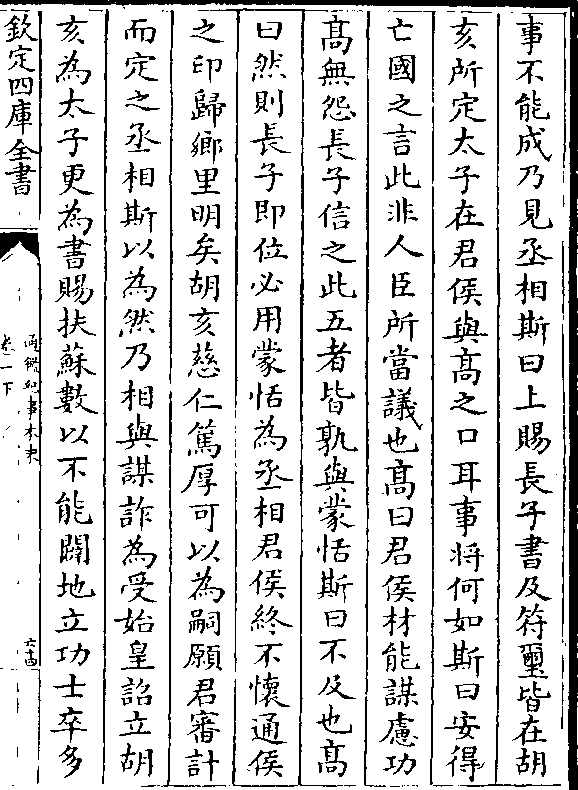 事不能成乃見丞相斯曰上賜長子書及符璽皆在胡
亥所定太子在君侯與髙之口耳事将何如斯曰安得
亡國之言此非人臣所當議也髙曰君侯材能謀慮功
髙無怨長子信之此五者皆孰與蒙恬斯曰不及也髙
曰然則長子即位必用蒙恬為丞相君侯終不懷通侯
之印歸鄉里明矣胡亥慈仁篤厚可以為嗣願君審計
而定之丞相斯以為然乃相與謀詐為受始皇詔立胡
亥為太子更為書賜扶蘇數以不能闢地立功士卒多
欽定四庫全書
通鑑紀事本末
卷一下